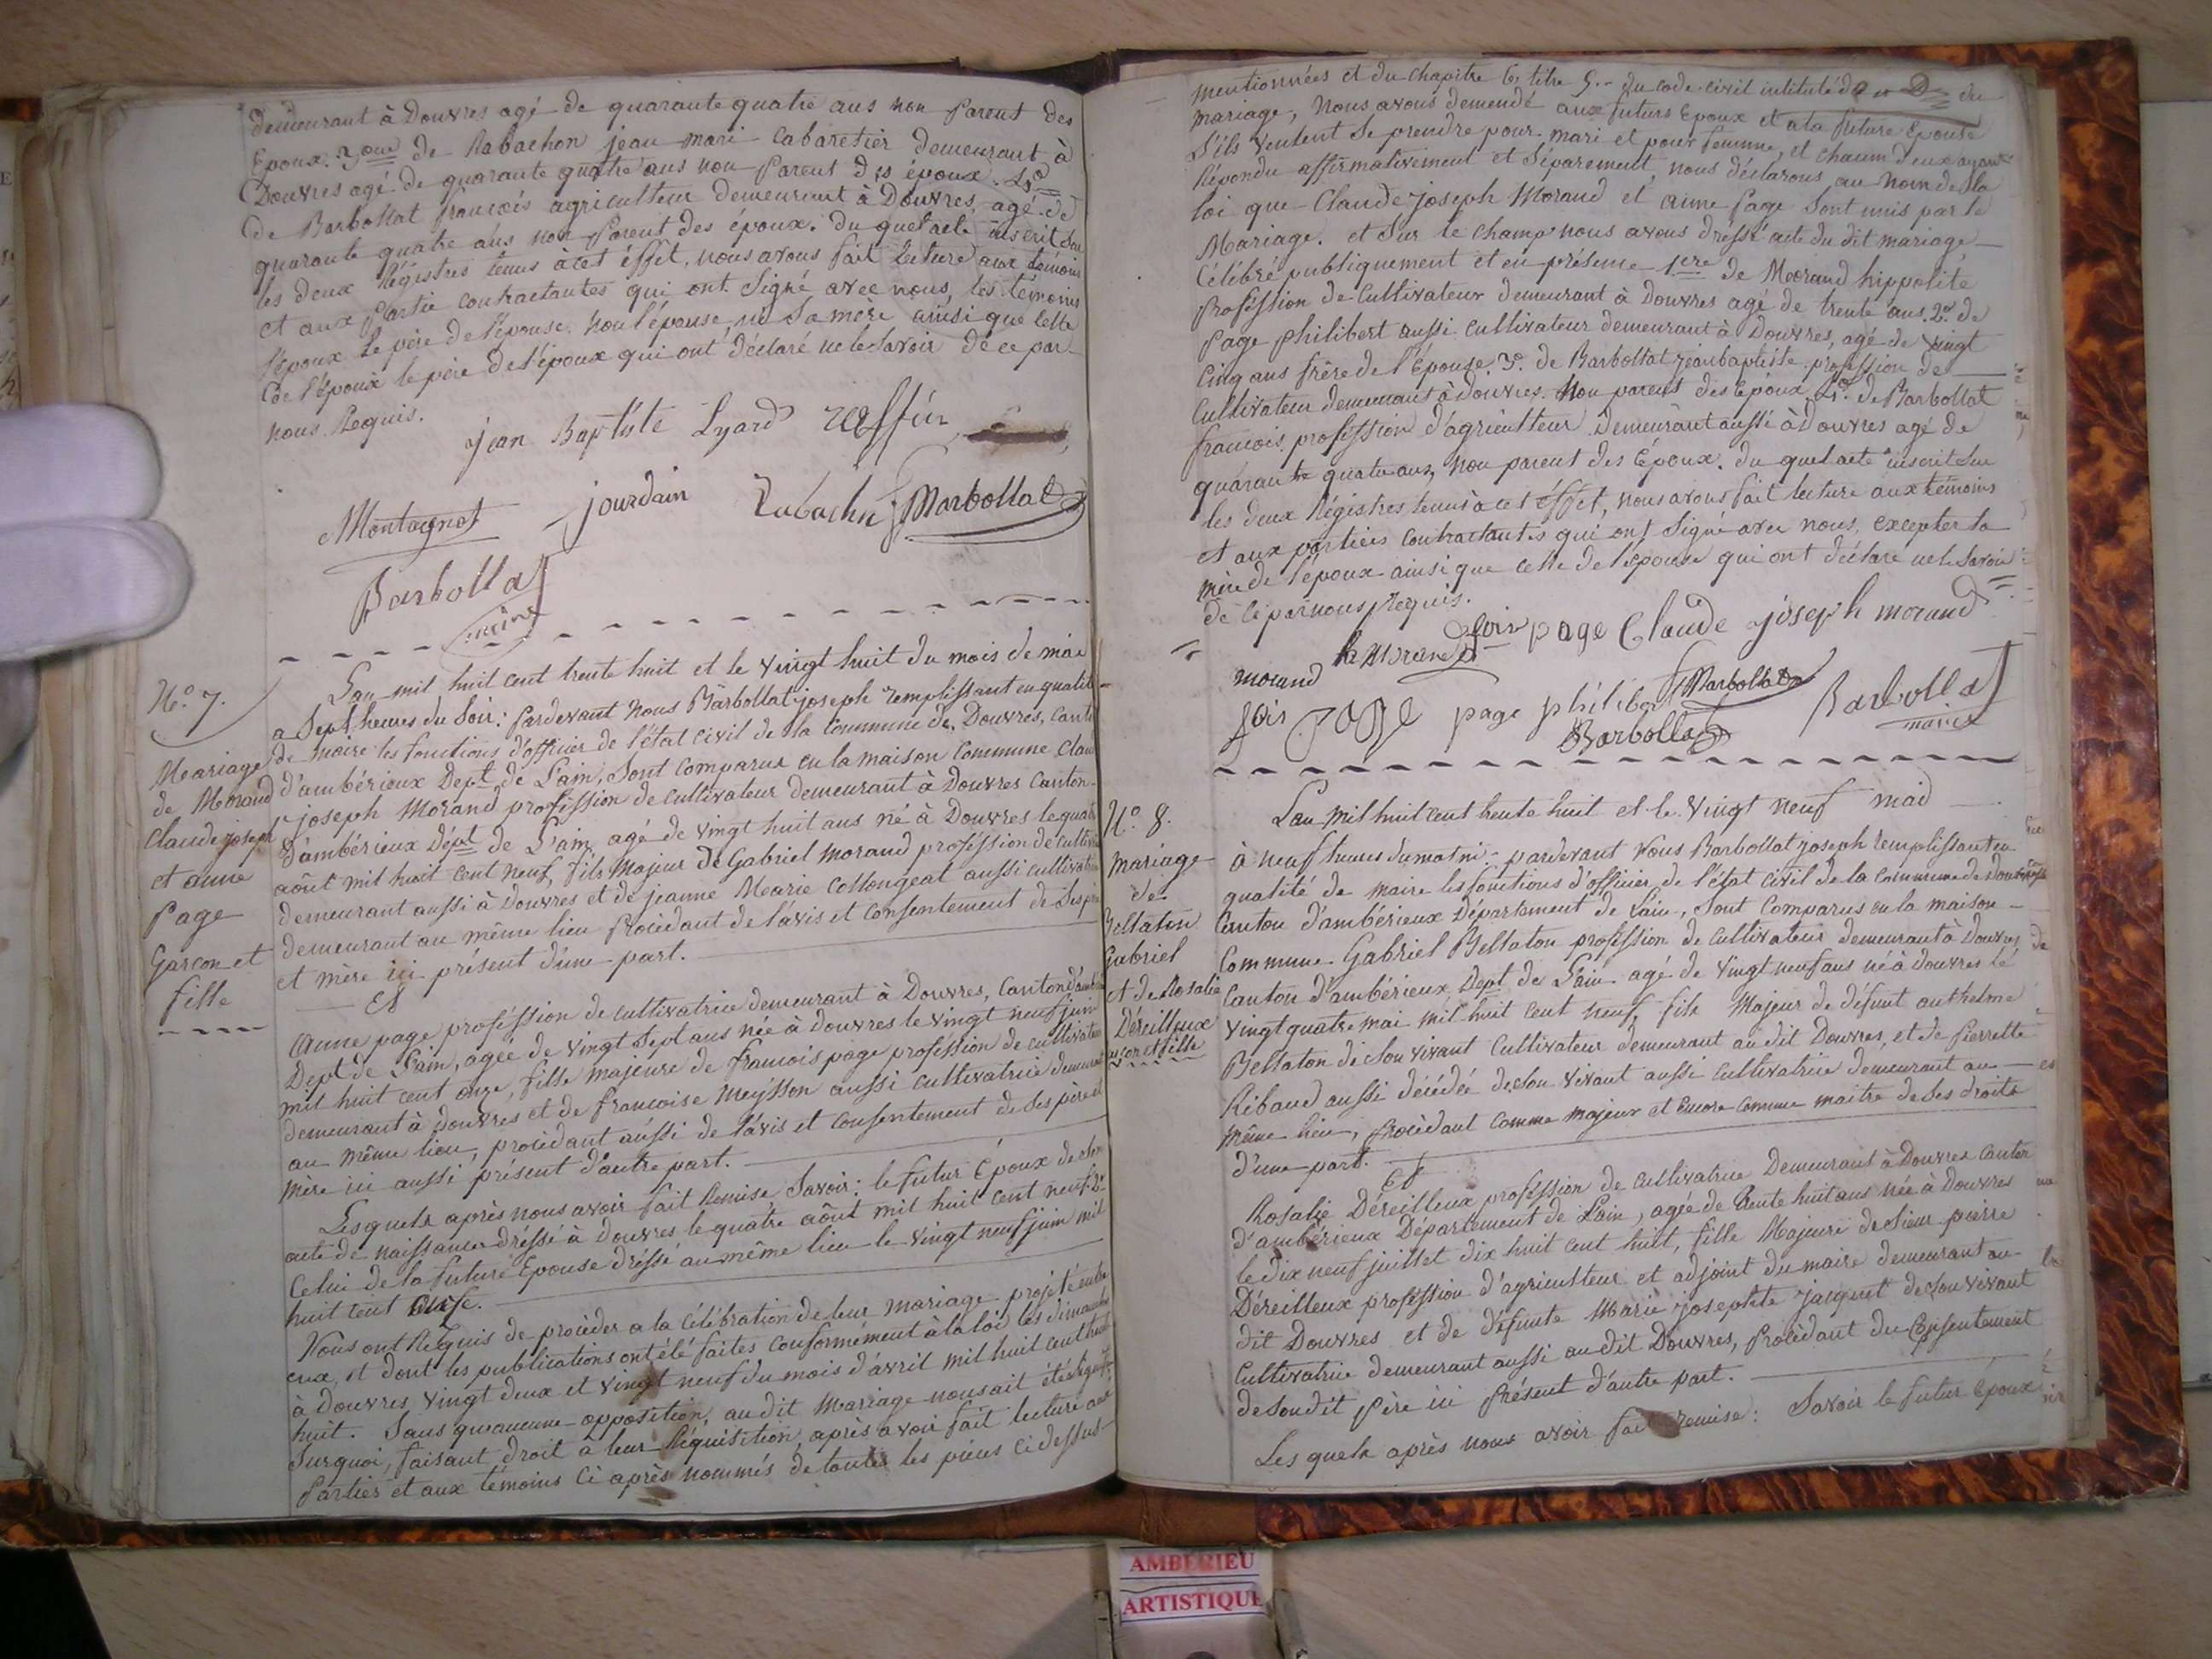 demeurant à Douvres agé de quarante quatre ans non Parent des
Epoux. 3eme de Rabachon jean mari cabaretier demeurant à
Douvres agé de quarante quatre ans non Parent des époux. 4e
de Barbollat francois agriculteur demeurant à Douvres, agé de
quarante quatre ans non Parent des époux. du quel acte inscrit sur
les deux Régistres tenus à cet éffet, nous avons fait lecture aux témoins
et aux Partie contractantes qui ont signé avec nous, les témoins
l'époux le père de l'épouse, non l'épouse, ni sa mère ainsi que celle
de l'époux le père de l'époux qui ont déclaré ne le savoir de ce par
nous Requis.
jean Baptiste Lyard
Montagnat jourdain Rabachn Barbollat
Barbollat
maire
N.° 7.
Mariage
de Morand
Claude joseph
et anne
Page
Garcon et
fille
L'an mil huit cent trente huit et le vingt huit du mois de mai
a Sept heures du Soir: Pardevant Nous Barbollat joseph remplissant en qualité
de maire les fonctions d'officier de l'état civil de la Commune de Douvres, cant
d'ambérieux Dept de L'ain, Sont Comparus en la maison Commune Clau
joseph Morand profession de cultivateur demeurant à Douvres Canton
d'ambérieux Dépt de L'ain agé de vingt huit ans né à Douvres le quatre
août mil huit cent neuf, fils Majeur de Gabriel Morand proféssion de cultiva
demeurant aussi à Douvres et de jeanne Marie Collongeat aussi cultivatri
demeurant au même lieu Procédant de l'avis et Consentement de Ses pè
et mère ici présent d'une part.
Et
Anne page proféssion de cultivatrice demeurant à Douvres, Canton d'amb
Dept de L'ain, agée de vingt Sept ans née à Douvres le vingt neuf juin
mil huit cent onze, fille majeure de francois page profession de cultivateur
demeurant à Douvres et de francoise Meysson aussi cultivatrice demeurant
au même lieu, procédant aussi de l'avis et consentement de Ses père et
mère ici aussi présent d'autre part.
Lesquels après nous avoir fait Remise Savoir: le futur Époux de Son
acte de naissance dréssé à Douvres le quatre août mil huit cent neuf. 2°
Celui de la future Epouse dréssé au même lieu le vingt neuf juin mil
huit cent onze.
Nous ont Réquis de procéder a la Célébration de leur mariage projeté entre
eux, et dont les publications ont été faites conformément à la loi les dimanches
à Douvres vingt deux et vingt neuf du mois d'avril mil huit cent trente
huit. Sans qu'aucune opposition, au dit Mariage nous ait été signifi
Surquoi, faisant droit à leur Réquisition, après avoir fait lecture aux
Parties et aux témoins Ci après nommés de toutes les pièces ci dessus
mentionnées et du Chapitre 6, titre 5. du code civil intitulé du
mariage, Nous avons demendé aux futurs Epoux et a la future Epouse
S'ils veulent se prendre pour mari et pour femme, et chacun d'eux ayant
Répondu affirmativement et séparément, nous déclarons au Nom de la
loi que Claude joseph Morand et anne Page Sont unis par le
Mariage. et Sur le champ nous avons dréssé acte du dit mariage
Célébré publiquement et en présence 1ere de Morand hippolite
Proféssion de Cultivateur demeurant à Douvres agé de trente ans. 2e de
Page Philibert aussi cultivateur demeurant à Douvres, agé de vingt
cinq ans frère de l'Epouse. 3e. de Barbollat jean baptiste profession de
Cultivateur demeurant à Douvres. Non parent des Epoux. 4e. de Barbollat
francois proféssion d'agriculteur Demeurant aussi à Douvres agé de
quarante quatre ans, Non parent des Epoux. du quel acte inscrit Sur
les deux Régistres tenus à cet éffet, nous avons fait lecture aux témoins
et aux parties Contractantes qui ont Signé avec nous, excepter la
mère de l'époux ainsi que celle de l'epouse qui ont déclaré ne le Savoir
de ce par nous Requis.
morand page Claude joseph morand
page philibert Barbollat
Barbollat Barbollat
maire
N.° 8.
Mariage
de
Bellaton
Gabriel
et de Rosalie
Déreilleux
garcon et fille
L'an Mil huit cent trente huit et le vingt neuf mai
à neuf heures du matin: pardevant Nous Barbollat joseph remplissant en
qualité de maire les fonctions d'officier de l'état civil de la Commune de Douvres
Canton d'ambérieux Département de L'ain, Sont Comparus en la maison
Commune Gabriel Bellaton proféssion de Cultivateur demeurant à Douvres
Canton d'ambérieux Dept de L'ain agé de vingt neuf ans né à Douvres le
vingt quatre mai mil huit cent neuf, fils Majeur de défunt anthelme
Bellaton de Son vivant Cultivateur demeurant au dit Douvres, et de Pierrette
Ribaud aussi décédée de Son vivant aussi cultivatrice demeurant au
même lieu, Procédant comme majeur et Encore comme maitre de Ses droits
d'une part.
Et
Rosalie Déreilleux proféssion de cultivatrice Demeurant à Douvres Canton
d'ambérieux Département de L'ain, agée de trente huit ans née à Douvres
le dix neuf juillet dix huit cent huit, fille Majeure de Sieur pierre
Déreilleux proféssion d'agriculteur et adjoint du maire demeurant au
dit Douvres et de défunte Marie josephte jacquet de Son vivant
Cultivatrice demeurant aussi au dit Douvres, Procédant du Consentement
de Son dit Père ici Présent d'autre part.
Les quels après nous avoir fait remise: Savoir le futur époux
AMBERIEU
ARTISTIQUE